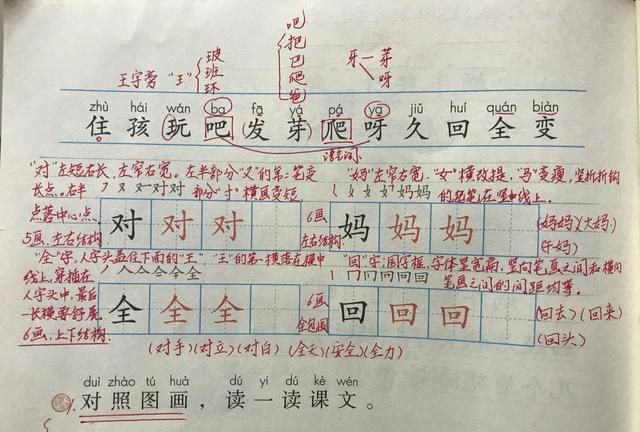 吧
把
巴
爬
爸
玻
班
环
王字旁 "王"
牙—芽
呀
zhù hái wán ba fā yá pá yā jiǔ huí quán biàn
住 孩 玩 吧 发 芽 爬 呀 久 回 全 变
"对"左短右长，左窄右宽。左半部分"又"的第二笔变
长点。右半部分"寸"横画变短，
点落中心点。
5画，左右结构
对 对 对
"妈"左窄右宽，"女"横改提，"马"变瘦，竖折折钩
的起笔在竖中线上。
6画
左右结构
妈 妈 妈
(妈妈)(大妈)
(干妈)
"全"字，人字头盖住下面的"王"，"王"的第一横落在横中
线上，穿插在
人字头中，最后
一长横要舒展。
6画，上下结构
全 全 全
"回"字：国字框，字体呈宽扁，竖向笔画之间和横向
笔画之间的间距均等。
6画
全包围
回 回 回
(回去)(回来)
(回头)
(对手)(对立)(对白) (全天)(安全)(全力)
duì zhào tú huà dú yi dú kè wén
对照图画，读一读课文。